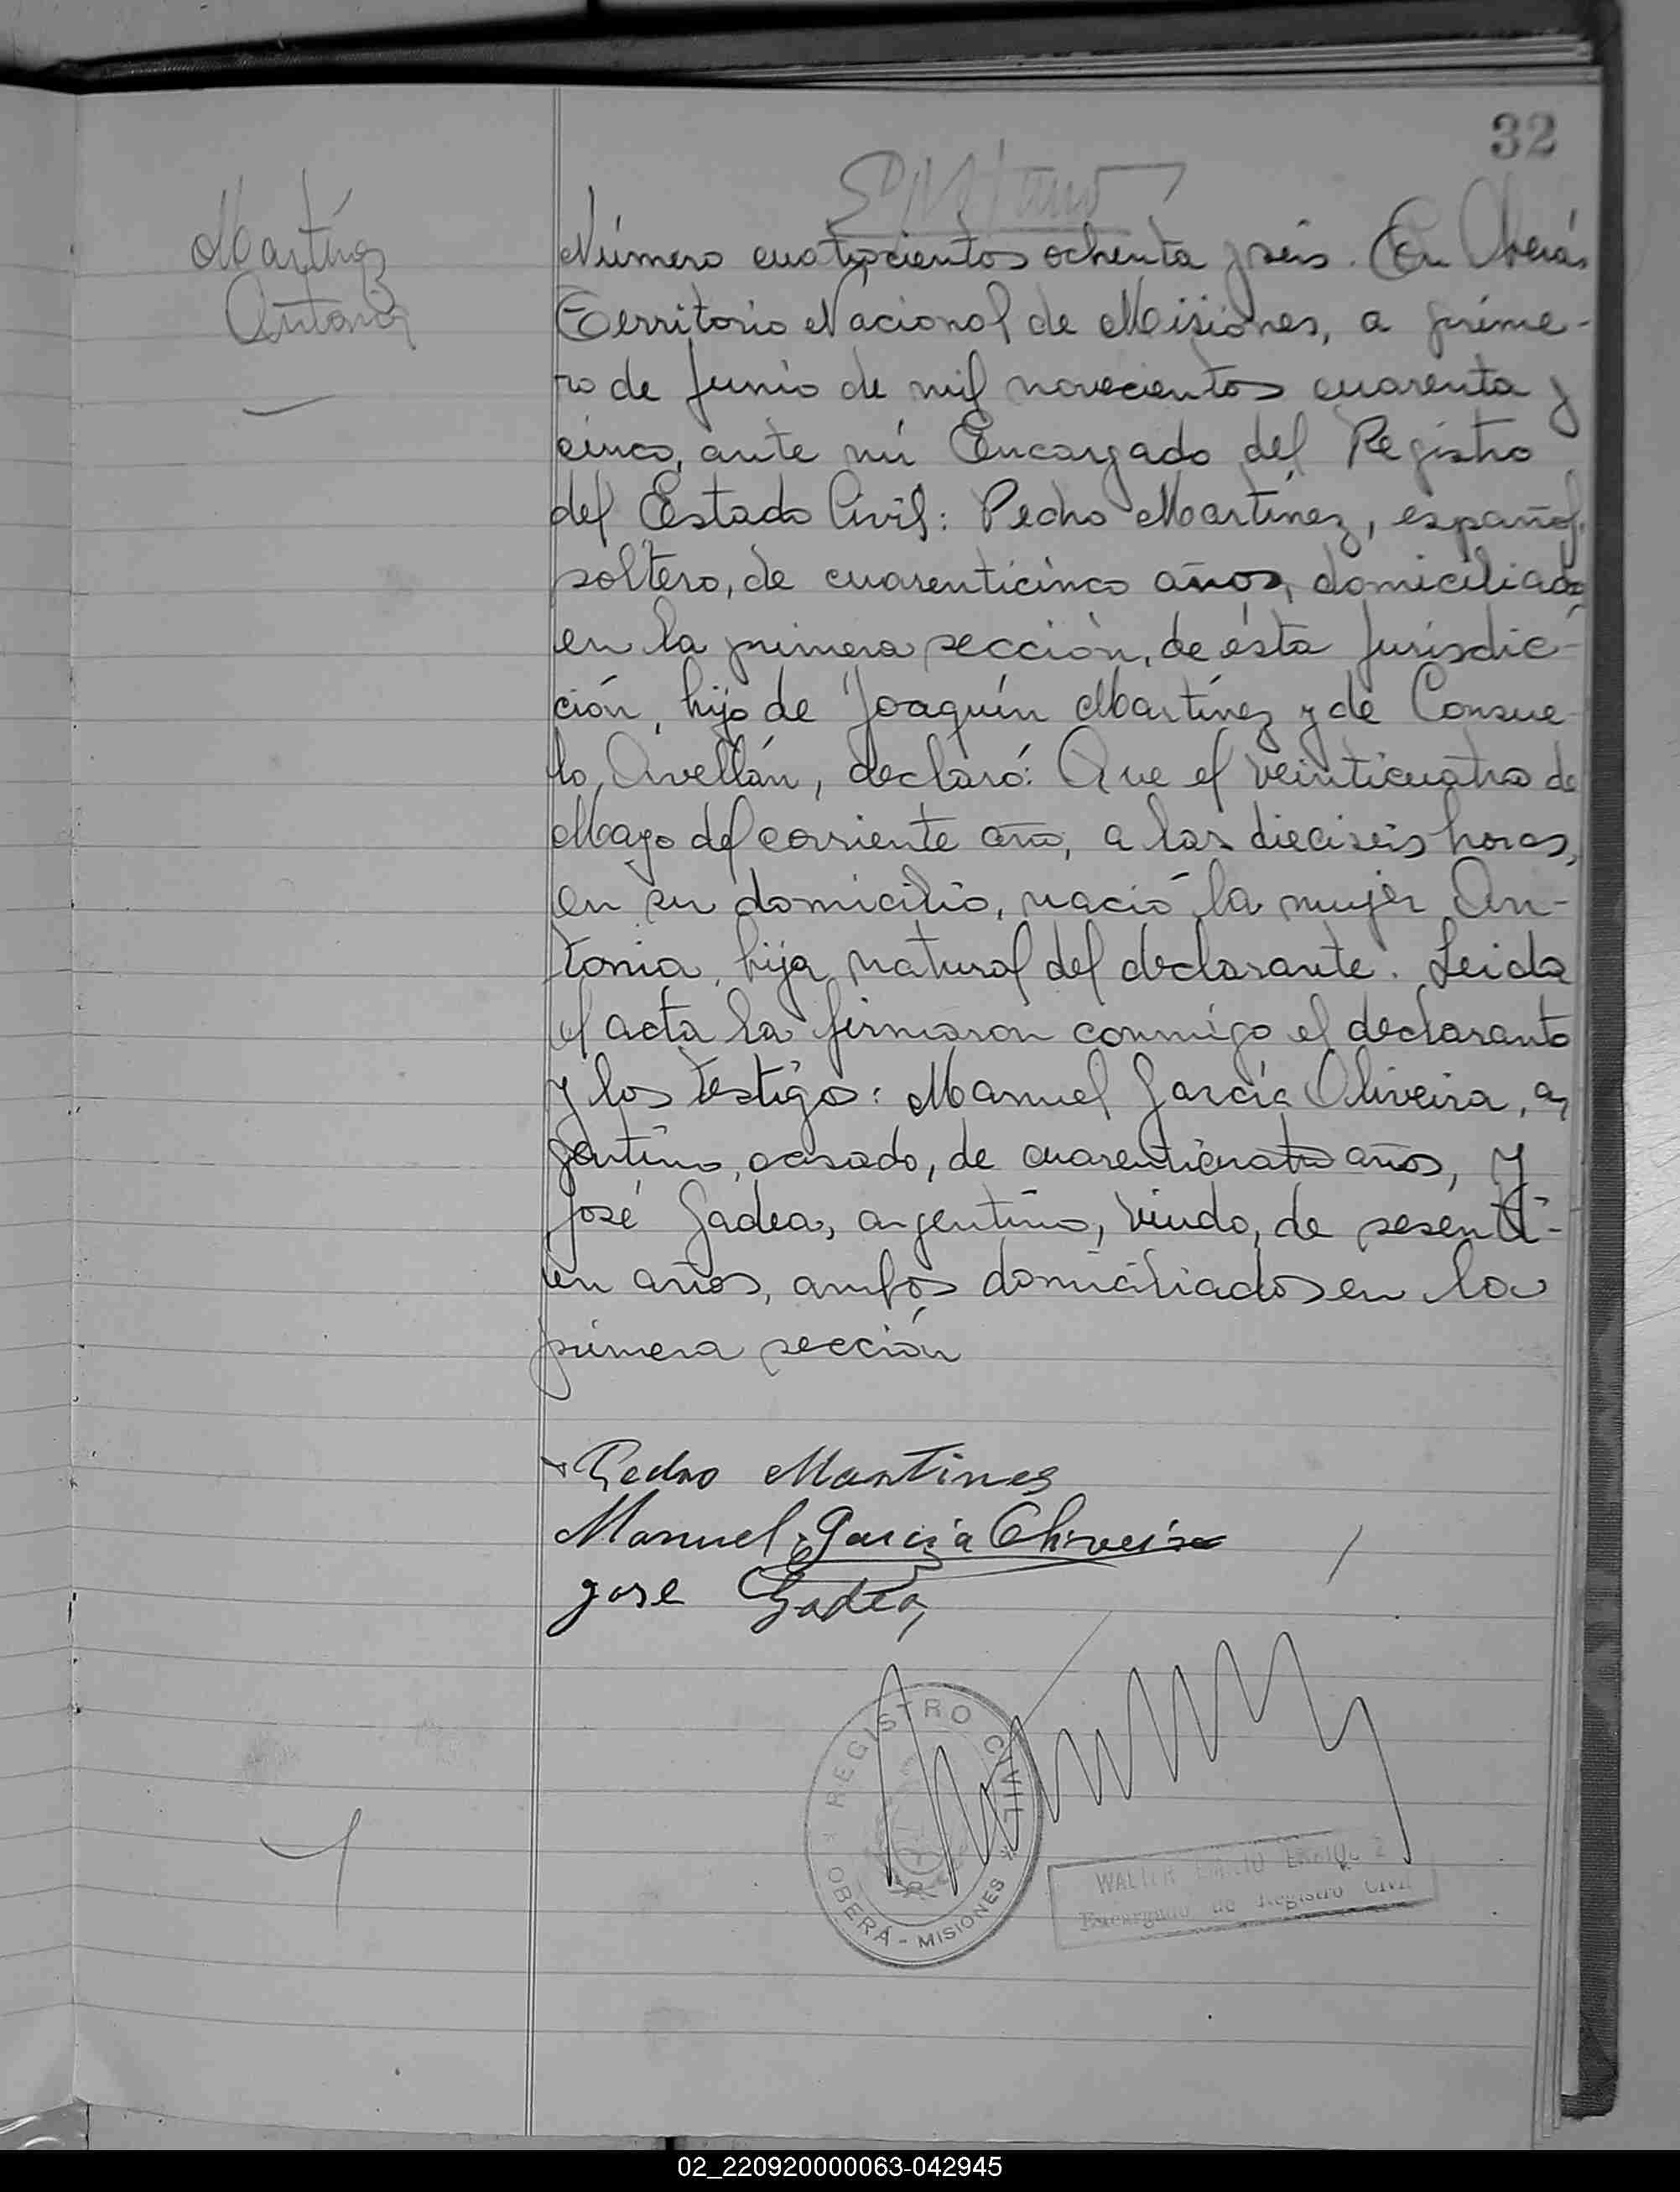 32
Martínez
Antonia
Número cuatrocientos ochenta y seis. En Oberá,
Territorio Nacional de Misiones, a prime-
ro de Junio de mil novecientos cuarenta y
cinco, ante mí Encargado del Registro
del Estado Civil: Pedro Martínez, español,
soltero, de cuarenticinco años, domiciliado
en la primera sección, de ésta Jurisdic-
ción, hijo de Joaquín Martínez y de Consue-
lo Avellán, declaró: Que el veinticuatro de
Mayo del corriente año, a las dieciseis horas,
en su domicilio, nació la mujer An-
tonia, hija natural del declarante. Leida
el acta la firmaron conmigo el declarante
y los testigos: Manuel García Oliveira, ar
gentino, casado, de cuarenticuatro años, y
José Gadea, argentino, viudo, de sesenti-
un años, ambos domiciliados en la
primera sección
Pedro Martines
Manuel Garcia Oliveira
Jose Gadea
REGISTRO CIVIL
OBERÁ - MISIONES
WALTER EMILIO
Encargado de Registro Civil
02_220920000063-042945